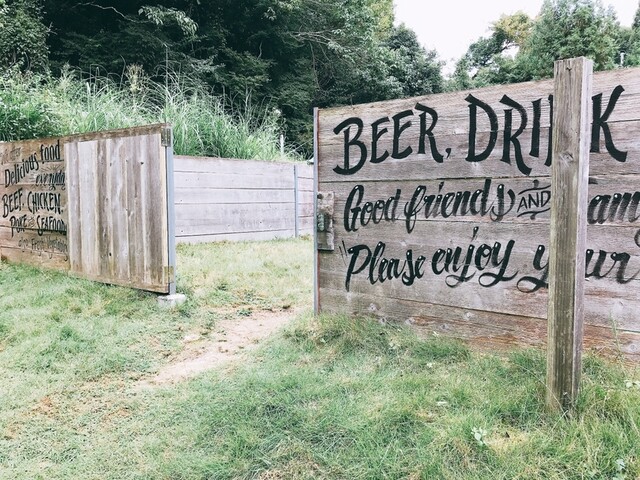 Delicious food
everyday
BEEF. CHICKEN.
PORK AND SEAFOOD
BEER, DRI K
Good friends AND am
"Please enjoy y ur